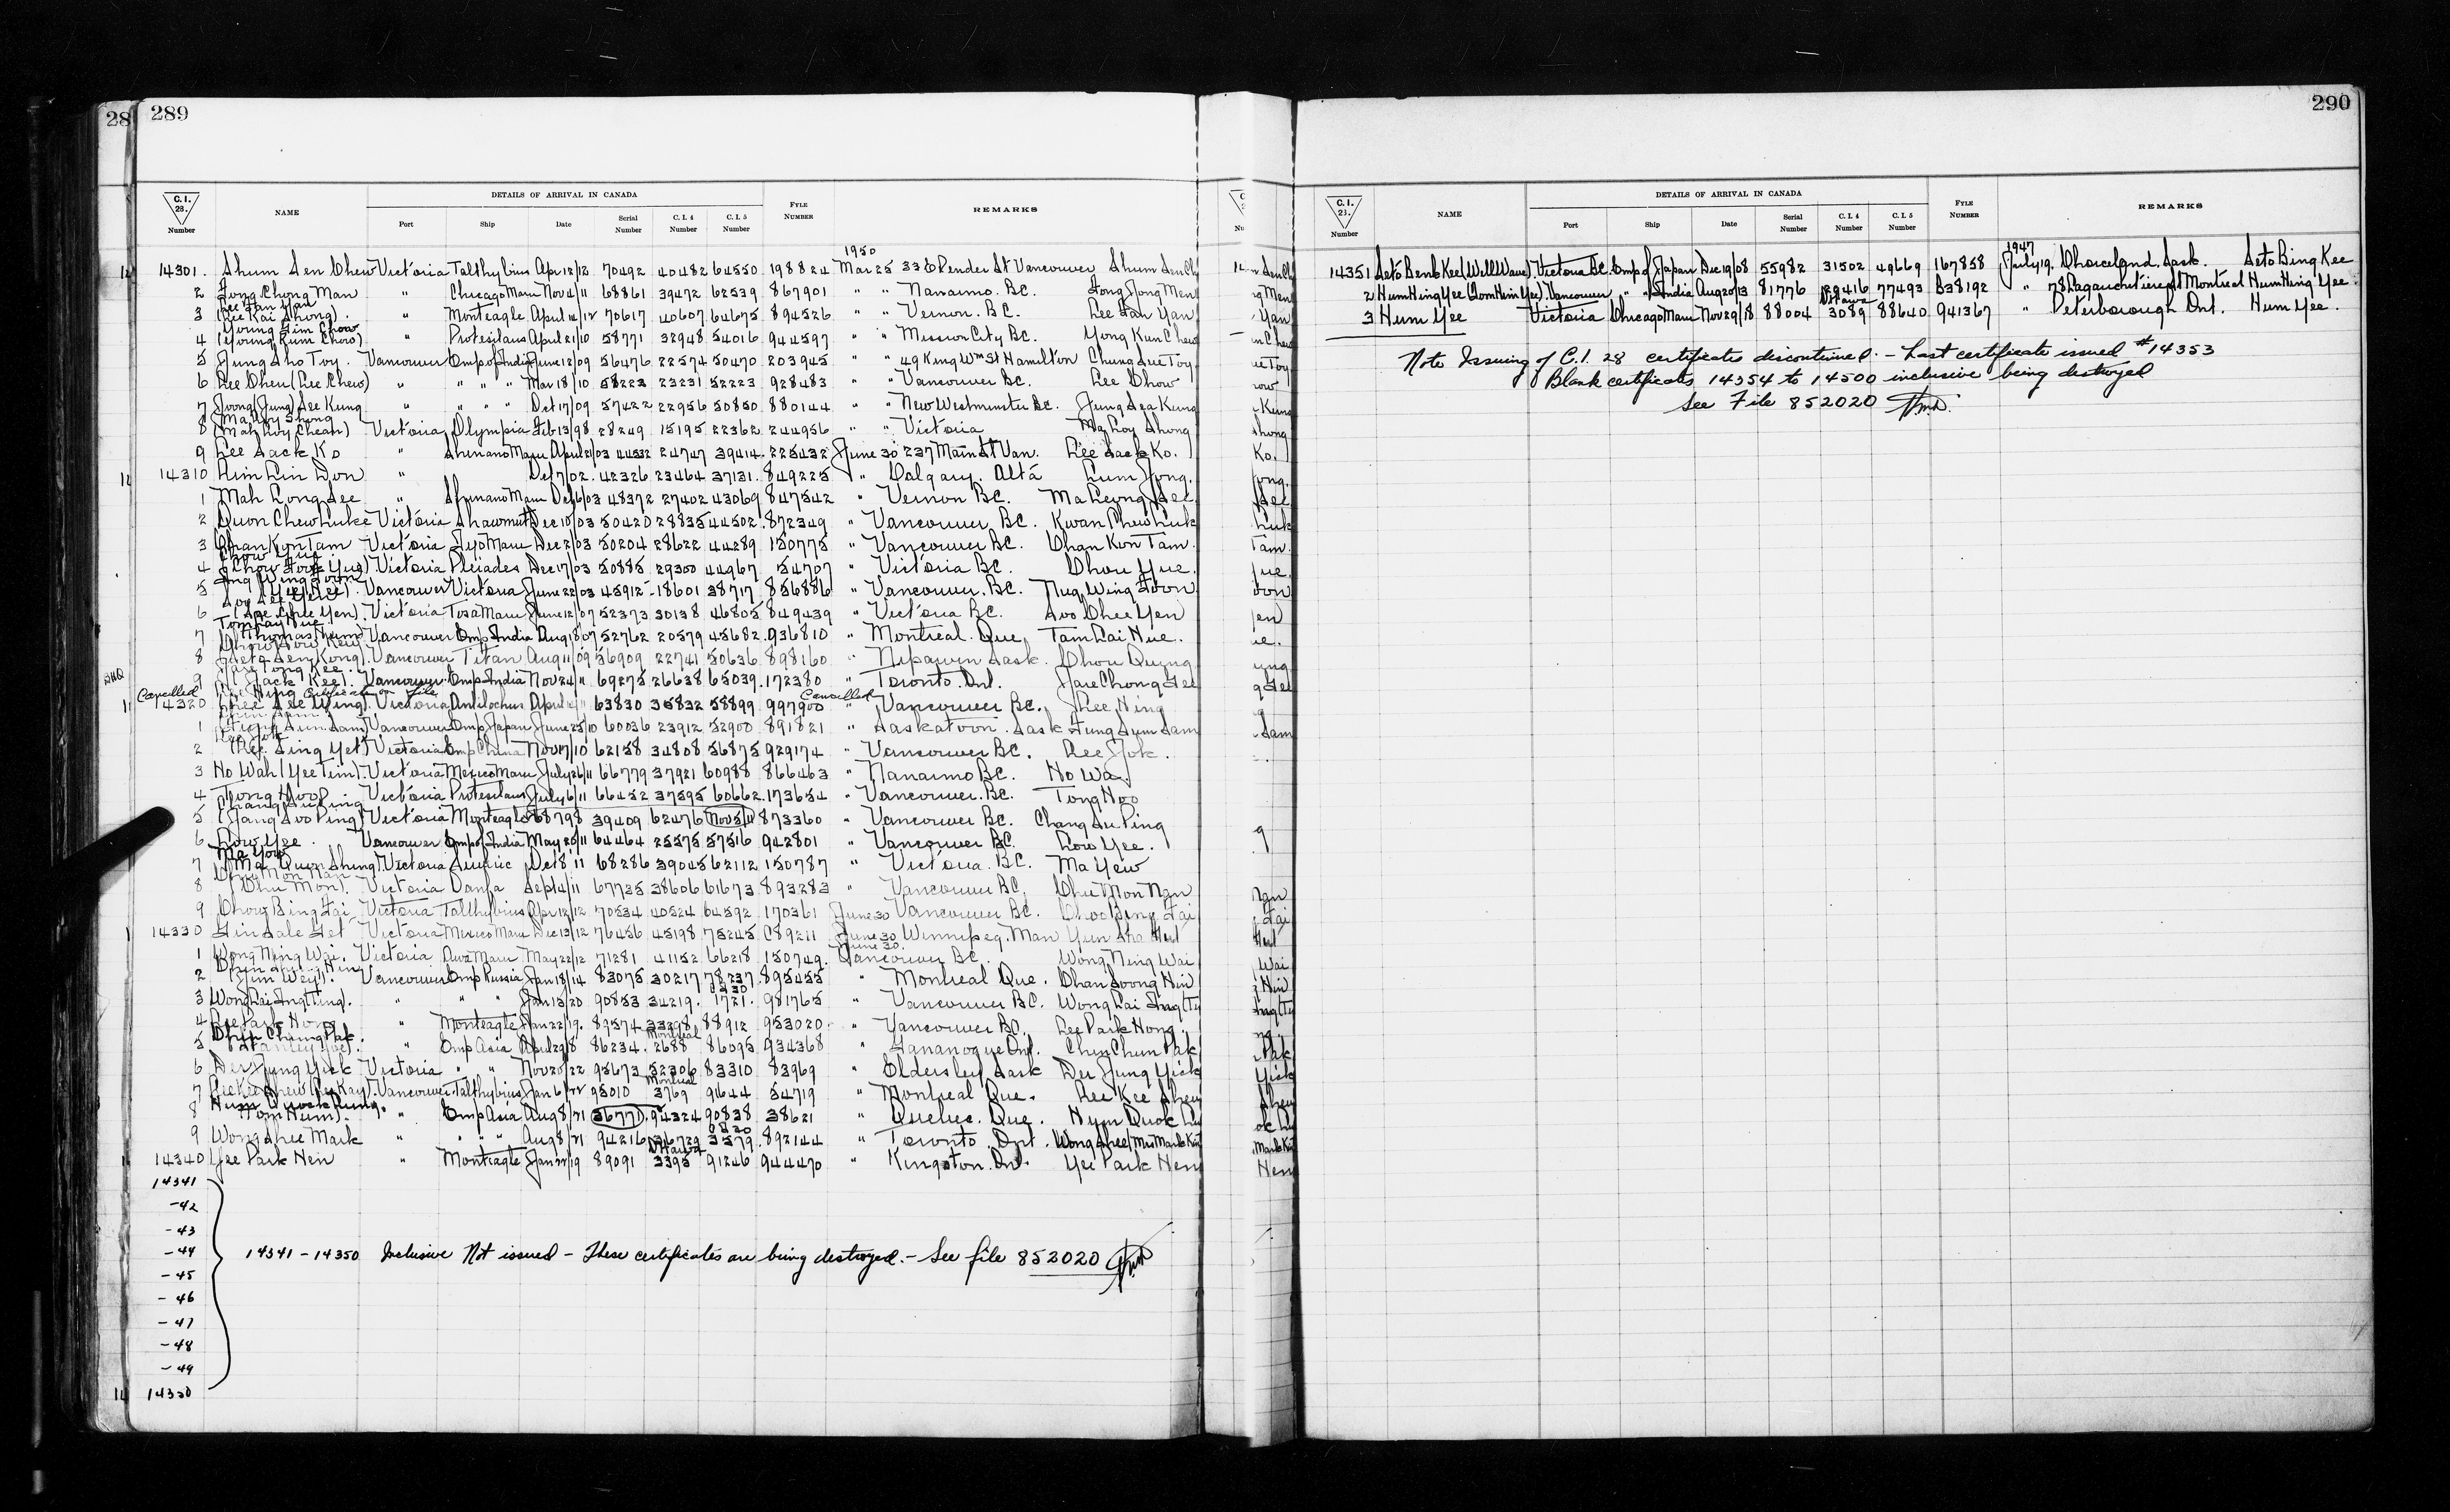 289
28
DETAILS OF ARRIVAL IN CANADA
C.I. 28. Number NAME Port Ship Date Serial Number C.I.4 Number C.I.5 Number FYLE NUMBER REMARKS
1950
14301. Shum Sen Chew Victoria Talthybius Apr 12/12 70492 40482 64550 198824 Mar 25 336 Pender St Vancouver Shum Sen
2 Jong Chong Man " Chicago Maru Nov 4/11 68861 39472 62539 867901 " " Nanaimo. B.C. Jong Jong Men
3 Lee Fan Yan (Lee Kai Shong). " Monteagle April 14/12 70617 40607 64675 894526 " " Vernon. B.C. Lee Fan Yan
4 Young Gim Chow (Young Kum Chow) " Protesilaus April 21/10 58771 32948 54016 944597 " " Mission City B.C. Yong Kun Chew
5 Jung Sho Toy. Vancouver Emp of India June 12/09 56476 22574 50470 203945 " " 49 King Wm St Hamilton Chung Sue Toy
6 Lee Chen (Lee Chew) " " " " Mar 18/10 58223 23231 52223 928483 " " Vancouver B.C. Lee Chow
7 Joong (Jung) See Kung " " " " Oct 17/09 57422 22956 50850 880144 " " New Westminster B.C. Jung Sea Kung
8 Mah Loy Shong (Mah Loy Chean) Victoria Olympia Feb 13/98 28249 15195 22362 244956 " " Victoria Ma Loy Shong
9 Lee Sack Ko " Shinano Maru April 21/03 44532 24747 39414. 225432 June 30 237 Main St Van. Lee Sack Ko.
14310 Lim Lin Don " Oct 7/02. 42326 23464 37131. 849225 " Calgary. Alta Lum Jong.
1 Mah Long See " Shinano Maru Oct 6/03 48372 27402 43069 847542 " Vernon B.C. Ma Leong See
2 Quon Chew Luke Victoria Shawmut Dec 10/03 50420 28835 44502. 872349 " Vancouver B.C. Kwan Chew Luk
3 Chan Kon Tam Victoria Iyo Maru Dec 2/03 50204 28622 44289 150775 " Vancouver B.C. Chan Kon Tam.
4 Chow Yue (Chow Fook Yue) Victoria Pleiades Dec 17/03 50885 29300 44967 54707 " Victoria B.C. Chou Yue
5 Ing Wing Foon Vancouver Victoria June 22/03 45912 - 18601 38717 856886 " Vancouver. B.C. Nug Wing Foon
6 Soo See Yen (Soo Chee Yen) Victoria Tosa Maru June 12/07 52373 30138 46805 849439 " Victoria B.C. Soo Chee Yen
7 Tom Lay Hue (Thomas Hum) Vancouver Emp India Aug 18/07 52762 20579 45682. 936810 " Montreal. Que. Tam Lai Hue.
8 Chow Kew (Seeto Sen Kong). Vancouver Titan Aug 11/09 56909 22741 50636. 898160 " Nipawin Sask. Chou Quong
9 Jare Tong Kee (Jack Kee). Vancouver Emp India Nov 24/11 69275 26638 65039. 172380 " Toronto. Ont. Jare Chong Gee
Cancelled Certificate on file Cancelled
14320 Lee Hing (Lee See Wing). Victoria Antilochus April 14/11 63830 35832 58899 997900 " Vancouver B.C. Lee Hing
1 (Fong Sum Sam) Vancouver Emp Japan June 25/10 60036 23912 52900 891821 " Saskatoon. Sask Fung Sum Sam
2 Lee Yok (Lee Sing Yet) Victoria Emp China Nov 17/10 62158 34808 56875 929174 " Vancouver B.C. Lee Yok.
3 Ho Wah (Yee Tim). Victoria Mexico Maru July 26/11 66779 37921 60988 866463 " Nanaimo B.C. Ho Wa.
4 Tong Hoo Victoria Protesilaus July 6/11 66452 37595 60662. 173654 " Vancouver. B.C. Tong Hoo
5 Chang Su Ping (Jang Soo Ping) Victoria Monteagle 68798 39409 62476 Nov 5/11 873360 " Vancouver B.C. Chang Su Ping
6 Low Yee. Vancouver Emp of India May 20/11 64464 25575 57516 942801 " Vancouver B.C. Low Yee.
7 Ma Yow (Ma Quon Shung). Victoria Suveric Oct 8/11 68286 39045 62112 150787 " Victoria. B.C. Ma Yew
8 Chu Mon Nan (Chu Mon). Victoria Canfa Sept 4/11 67735 38606 61673 893283 " Vancouver B.C. Chu Mon Nan
9 Chow Bing Fai Victoria Talthybius Apr 12/12 70534 40524 64592 170361 June 30 Vancouver B.C. Choo Bing Fai
14330 Gin Sale Get Victoria Mexico Maru Dec 13/12 76456 45198 75245 C89211 June 30 Winnipeg. Man Yun Sha
1 Wong Ning Wai. Victoria Awa Maru May 22/12 71281 41152 66218 150749. June 30. Vancouver B.C. Wong Ning Wai
2 (Jim Wey). Vancouver Emp Russia Jan 18/14 83075 30217 78237. 895455 " Montreal Que. Chan Soong Hin
3 Wong Lai Ing (Ting). " " " Jan 13/20 90853 34219. 1721. 981765 " Vancouver B.C. Wong Lai
4 Lee Park Hong " Monteagle Jan 22/19. 89574 33298 88912 953020 " Vancouver B.C. Lee Park Hong.
5 Chin Chung Pak. (Stanley Joe). " Emp Asia April 29/18 86234. Montreal 2688 86095 934368 " Gananoque Ont. Chin Chun Pak
6 Der Jung Yick Victoria " " Nov 20/22 95673 52306 83310 83969 " Eldersley Sask Der Jung Yick
7 Lee Kee Shew (Lee Kay). Vancouver Talthybius Jan 6/22 95010 Montreal 3769 91644 54719 " Montreal Que. Lee Kee Shew
8 Hum Quock Lung. (Tom Hum). " Emp Asia Aug 8/21 36771. 94324 90838 38621 " Quebec. Que. Hum Quok
9 Wong Shee Mark " " " " Aug 8/21 94216 36729 3579. 892144 " Toronto. Ont. Wong Shee (Mrs Mark
14340 Yee Park Hen " Monteagle Jan 22/19 89091 Ottawa 3395 91246 944470 " Kingston. Ont. Yee Park Hen
14341
-42
-43
-44 14341-14350 Inclusive Not issued - These certificates are being destroyed. - See file 852020
-45
-46
-47
-48
-49
14350
290
DETAILS OF ARRIVAL IN CANADA
C.I. 28. Number NAME Port Ship Date Serial Number C.I.4 Number C.I.5 Number FYLE NUMBER REMARKS
1947
14351 Seto Benk Kee (Well Wave). Victoria B.C. Emp of Japan Dec 19/08 55982 31502 49669 167858 July 19. Choiceland. Sask. Seto Bing Kee
2 Hum Hing Yee (Tom Him Yee). Vancouver " " India Aug 20/13 81776 29416 77493 838192 " 78 Lagauchetiere St Montreal Hum Hing Yee
3 Hum Yee Victoria Chicago Maru Nov 29/18 88004 Ottawa 3089 88640 941367 " Peterborough Ont. Hum Yee.
Note Issuing of C.I. 28 certificates discontinued. - Last certificate issued #14353
Blank certificates 14354 to 14500 inclusive being destroyed
See File 852020